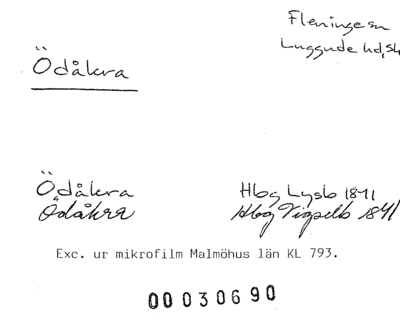 Fleninge sn
Luggude hd, Sk
Ödåkra
Ödåkra Hbg Lysb 1841
Ödåkra Hbg Vigselb 1841
Exc. ur mikrofilm Malmöhus län KL 793.
00 030690